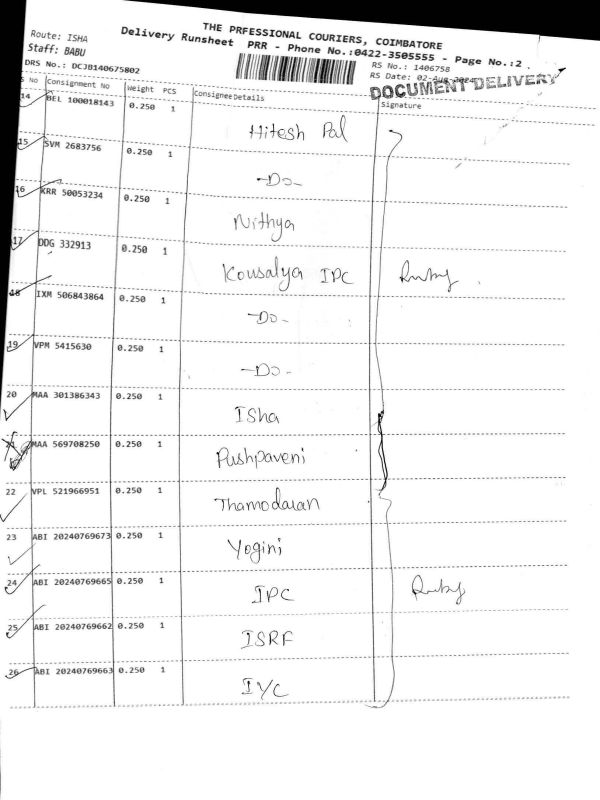 THE PRFESSIONAL COURIERS, COIMBATORE
Route: ISHA Delivery Runsheet PRR - Phone No.:0422-3505555 - Page No.:2 .
Staff: BABU RS No.: 1406758
DRS No.: DCJB140675802 RS Date: 02-Aug-2024
DOCUMENT DELIVERY
S No Consignment No Weight PCS ConsigneeDetails Signature
14 BEL 100018143 0.250 1 Hitesh Pal
15 SVM 2683756 0.250 1 -Do-
16 KRR 50053234 0.250 1 Nithya
17 DDG 332913 0.250 1 Kousalya IPC Ruby
18 IXM 506843864 0.250 1 -Do-
19 VPM 5415630 0.250 1 -Do-
20 MAA 301386343 0.250 1 Isha
MAA 569708250 0.250 1 Pushpaveni
22 VPL 521966951 0.250 1 Thamodaran
23 ABI 20240769673 0.250 1 Yogini
24 ABI 20240769665 0.250 1 IPC Ruby
25 ABI 20240769662 0.250 1 ISRF
26 ABI 20240769663 0.250 1 IYC